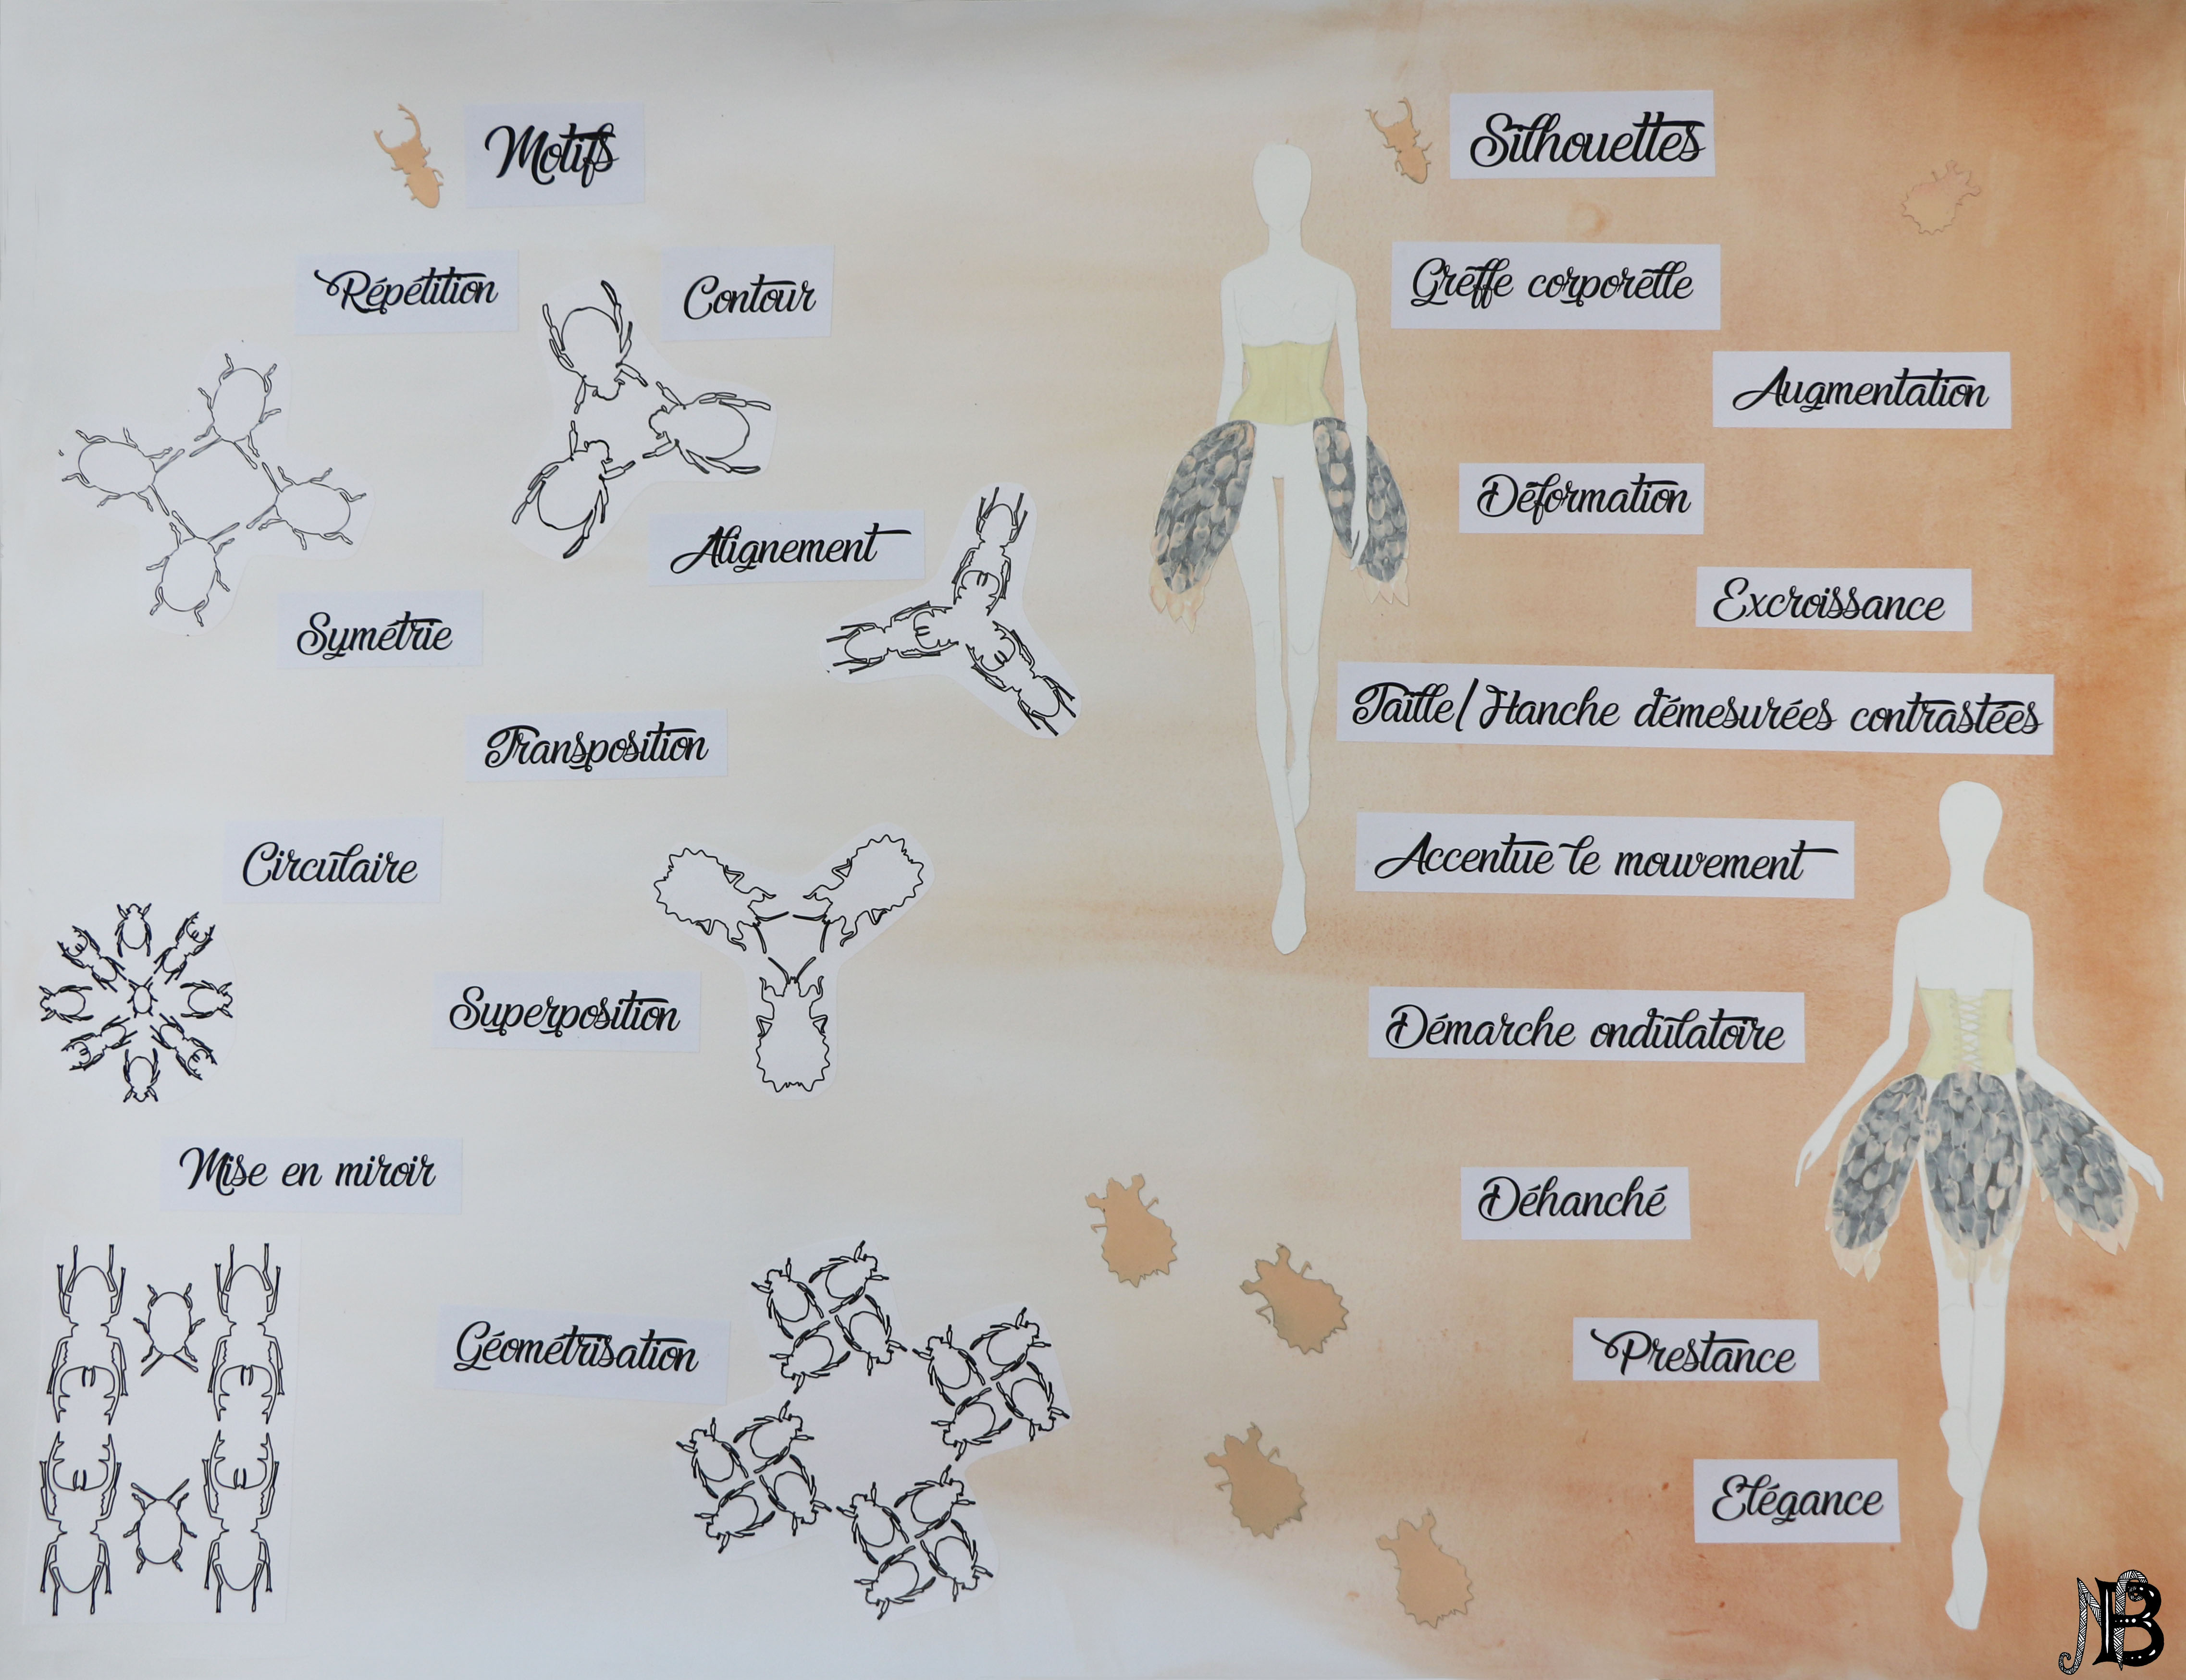 Motifs
Répétition
Contour
Alignement
Symétrie
Transposition
Circulaire
Superposition
Mise en miroir
Géométrisation
Silhouettes
Greffe corporelle
Augmentation
Déformation
Excroissance
Taille/Hanche démesurées contrastées
Accentue le mouvement
Démarche ondulatoire
Déhanché
Prestance
Elégance
NB